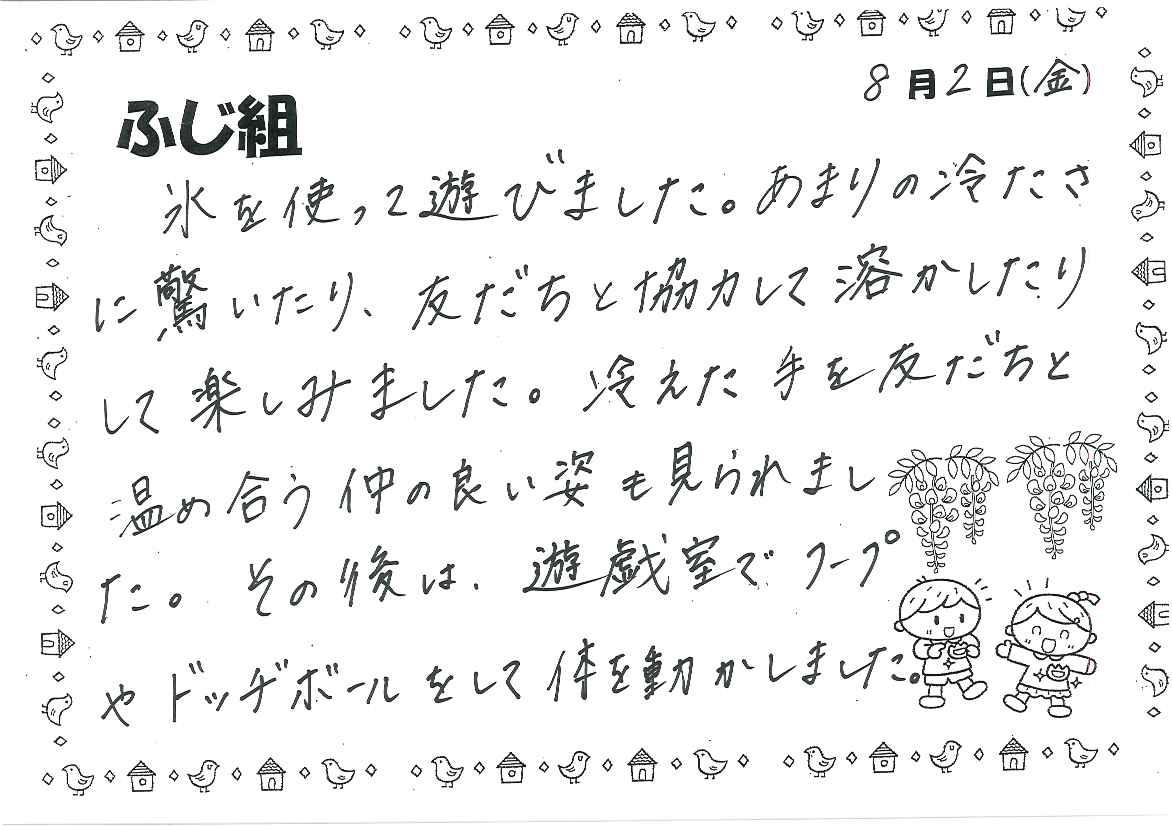 8月2日(金)
ふじ組
氷を使って遊びました。あまりの冷たさ
に驚いたり、友だちと協力して溶かしたり
して楽しみました。冷えた手を友だちと
温め合う仲の良い姿も見られまし
た。その後は、遊戯室でフープ
やドッヂボールをして体を動かしました。